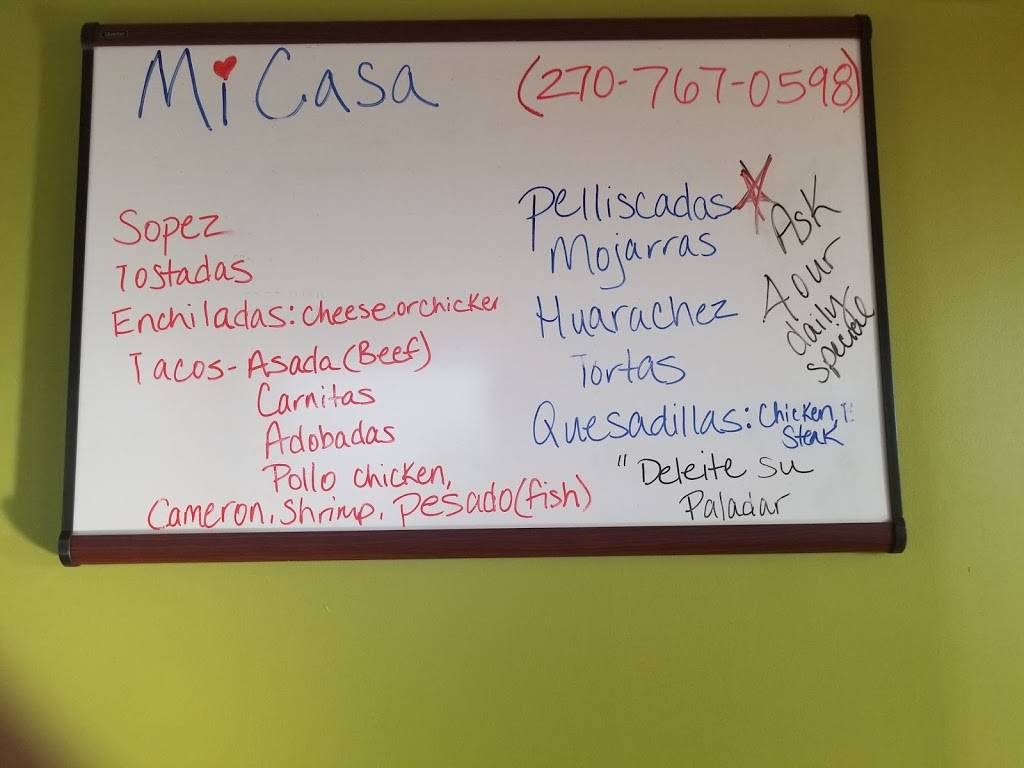 Mi Casa
(270-767-0598)
Sopez
Tostadas
Enchiladas: cheese or chicken
Tacos - Asada (Beef)
Carnitas
Adobadas
Pollo chicken,
Cameron, Shrimp, Pesado (fish)
Pelliscadas
Mojarras
Huarachez
Tortas
Quesadillas: Chicken,
Steak
"Deleite su
Paladar
Ask
4 our
daily
special